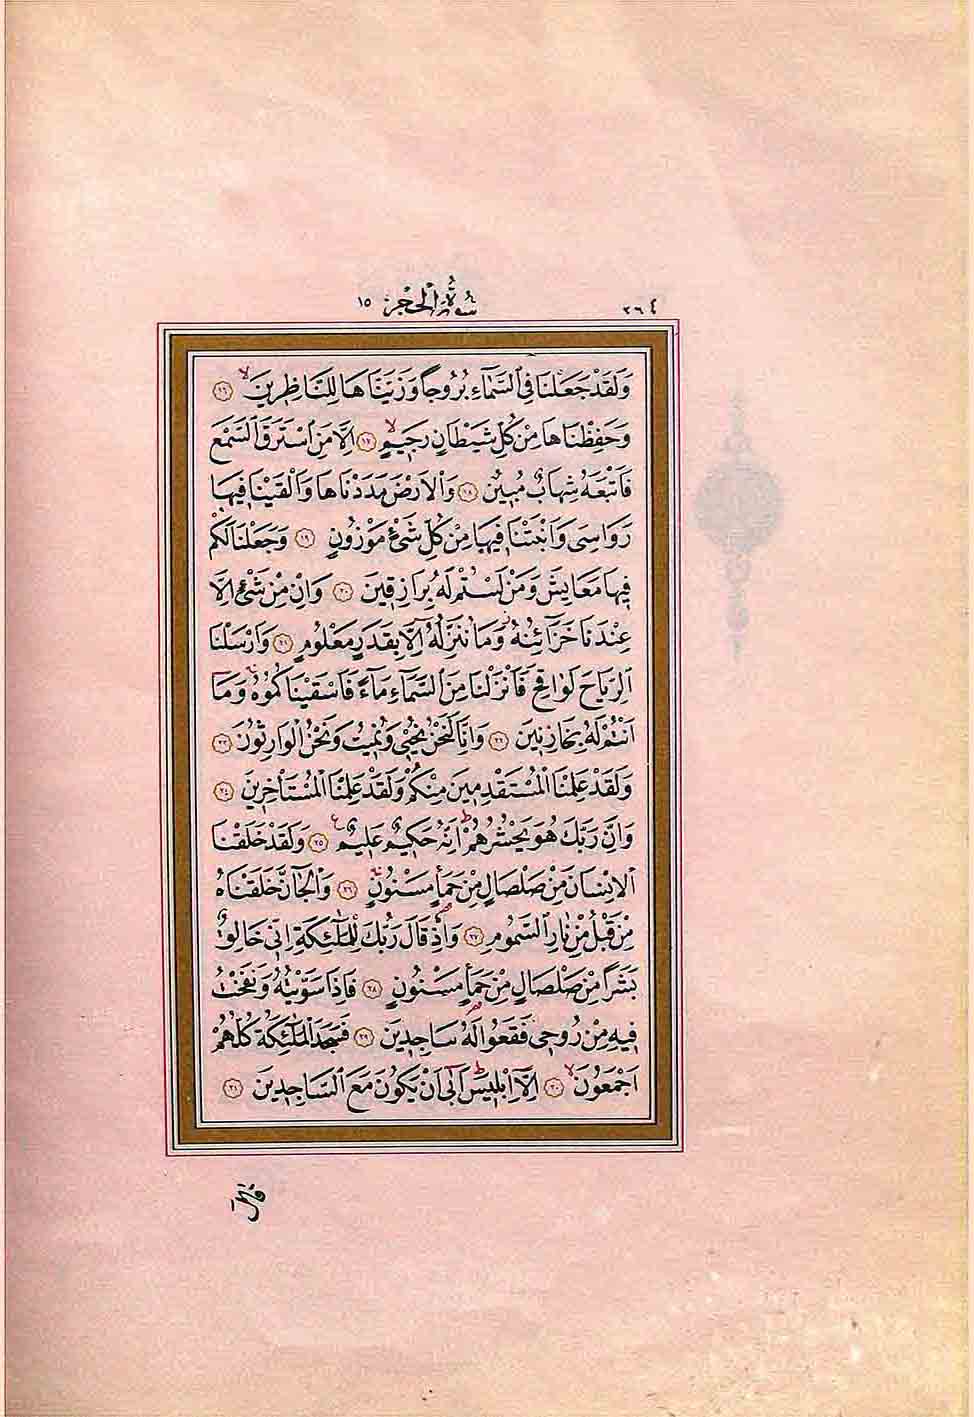 ٢٦٤ سُورَةُ الْحِجْرِ ١٥
وَلَقَدْ جَعَلْنَا فِي السَّمَاءِ بُرُوجًا وَزَيَّنَّاهَا لِلنَّاظِرِينَ ۙ ﴿١٦﴾
وَحَفِظْنَاهَا مِنْ كُلِّ شَيْطَانٍ رَجِيمٍ ۙ ﴿١٧﴾ اِلَّا مَنِ اسْتَرَقَ السَّمْعَ
فَاَتْبَعَهُ شِهَابٌ مُبِينٌ ﴿١٨﴾ وَالْاَرْضَ مَدَدْنَاهَا وَاَلْقَيْنَا فِيهَا
رَوَاسِيَ وَاَنْبَتْنَا فِيهَا مِنْ كُلِّ شَيْءٍ مَوْزُونٍ ﴿١٩﴾ وَجَعَلْنَا لَكُمْ
فِيهَا مَعَايِشَ وَمَنْ لَسْتُمْ لَهُ بِرَازِقِينَ ﴿٢٠﴾ وَاِنْ مِنْ شَيْءٍ اِلَّا
عِنْدَنَا خَزَائِنُهُ ۘ وَمَا نُنَزِّلُهُ اِلَّا بِقَدَرٍ مَعْلُومٍ ﴿٢١﴾ وَاَرْسَلْنَا
الرِّيَاحَ لَوَاقِحَ فَاَنْزَلْنَا مِنَ السَّمَاءِ مَاءً فَاَسْقَيْنَاكُمُوهُ ۚ وَمَا
اَنْتُمْ لَهُ بِخَازِنِينَ ﴿٢٢﴾ وَاِنَّا لَنَحْنُ نُحْيِي وَنُمِيتُ وَنَحْنُ الْوَارِثُونَ ﴿٢٣﴾
وَلَقَدْ عَلِمْنَا الْمُسْتَقْدِمِينَ مِنْكُمْ وَلَقَدْ عَلِمْنَا الْمُسْتَأْخِرِينَ ﴿٢٤﴾
وَاِنَّ رَبَّكَ هُوَ يَحْشُرُهُمْ ۜ اِنَّهُ حَكِيمٌ عَلِيمٌ ع ﴿٢٥﴾ وَلَقَدْ خَلَقْنَا
الْاِنْسَانَ مِنْ صَلْصَالٍ مِنْ حَمَأٍ مَسْنُونٍ ۚ ﴿٢٦﴾ وَالْجَانَّ خَلَقْنَاهُ
مِنْ قَبْلُ مِنْ نَارِ السَّمُومِ ﴿٢٧﴾ وَاِذْ قَالَ رَبُّكَ لِلْمَلٰئِكَةِ اِنِّي خَالِقٌ
بَشَرًا مِنْ صَلْصَالٍ مِنْ حَمَأٍ مَسْنُونٍ ﴿٢٨﴾ فَاِذَا سَوَّيْتُهُ وَنَفَخْتُ
فِيهِ مِنْ رُوحِي فَقَعُوا لَهُ سَاجِدِينَ ﴿٢٩﴾ فَسَجَدَ الْمَلٰئِكَةُ كُلُّهُمْ
اَجْمَعُونَ ۙ ﴿٣٠﴾ اِلَّا اِبْلِيسَ ۜ اَبٰى اَنْ يَكُونَ مَعَ السَّاجِدِينَ ﴿٣١﴾
قَالَ